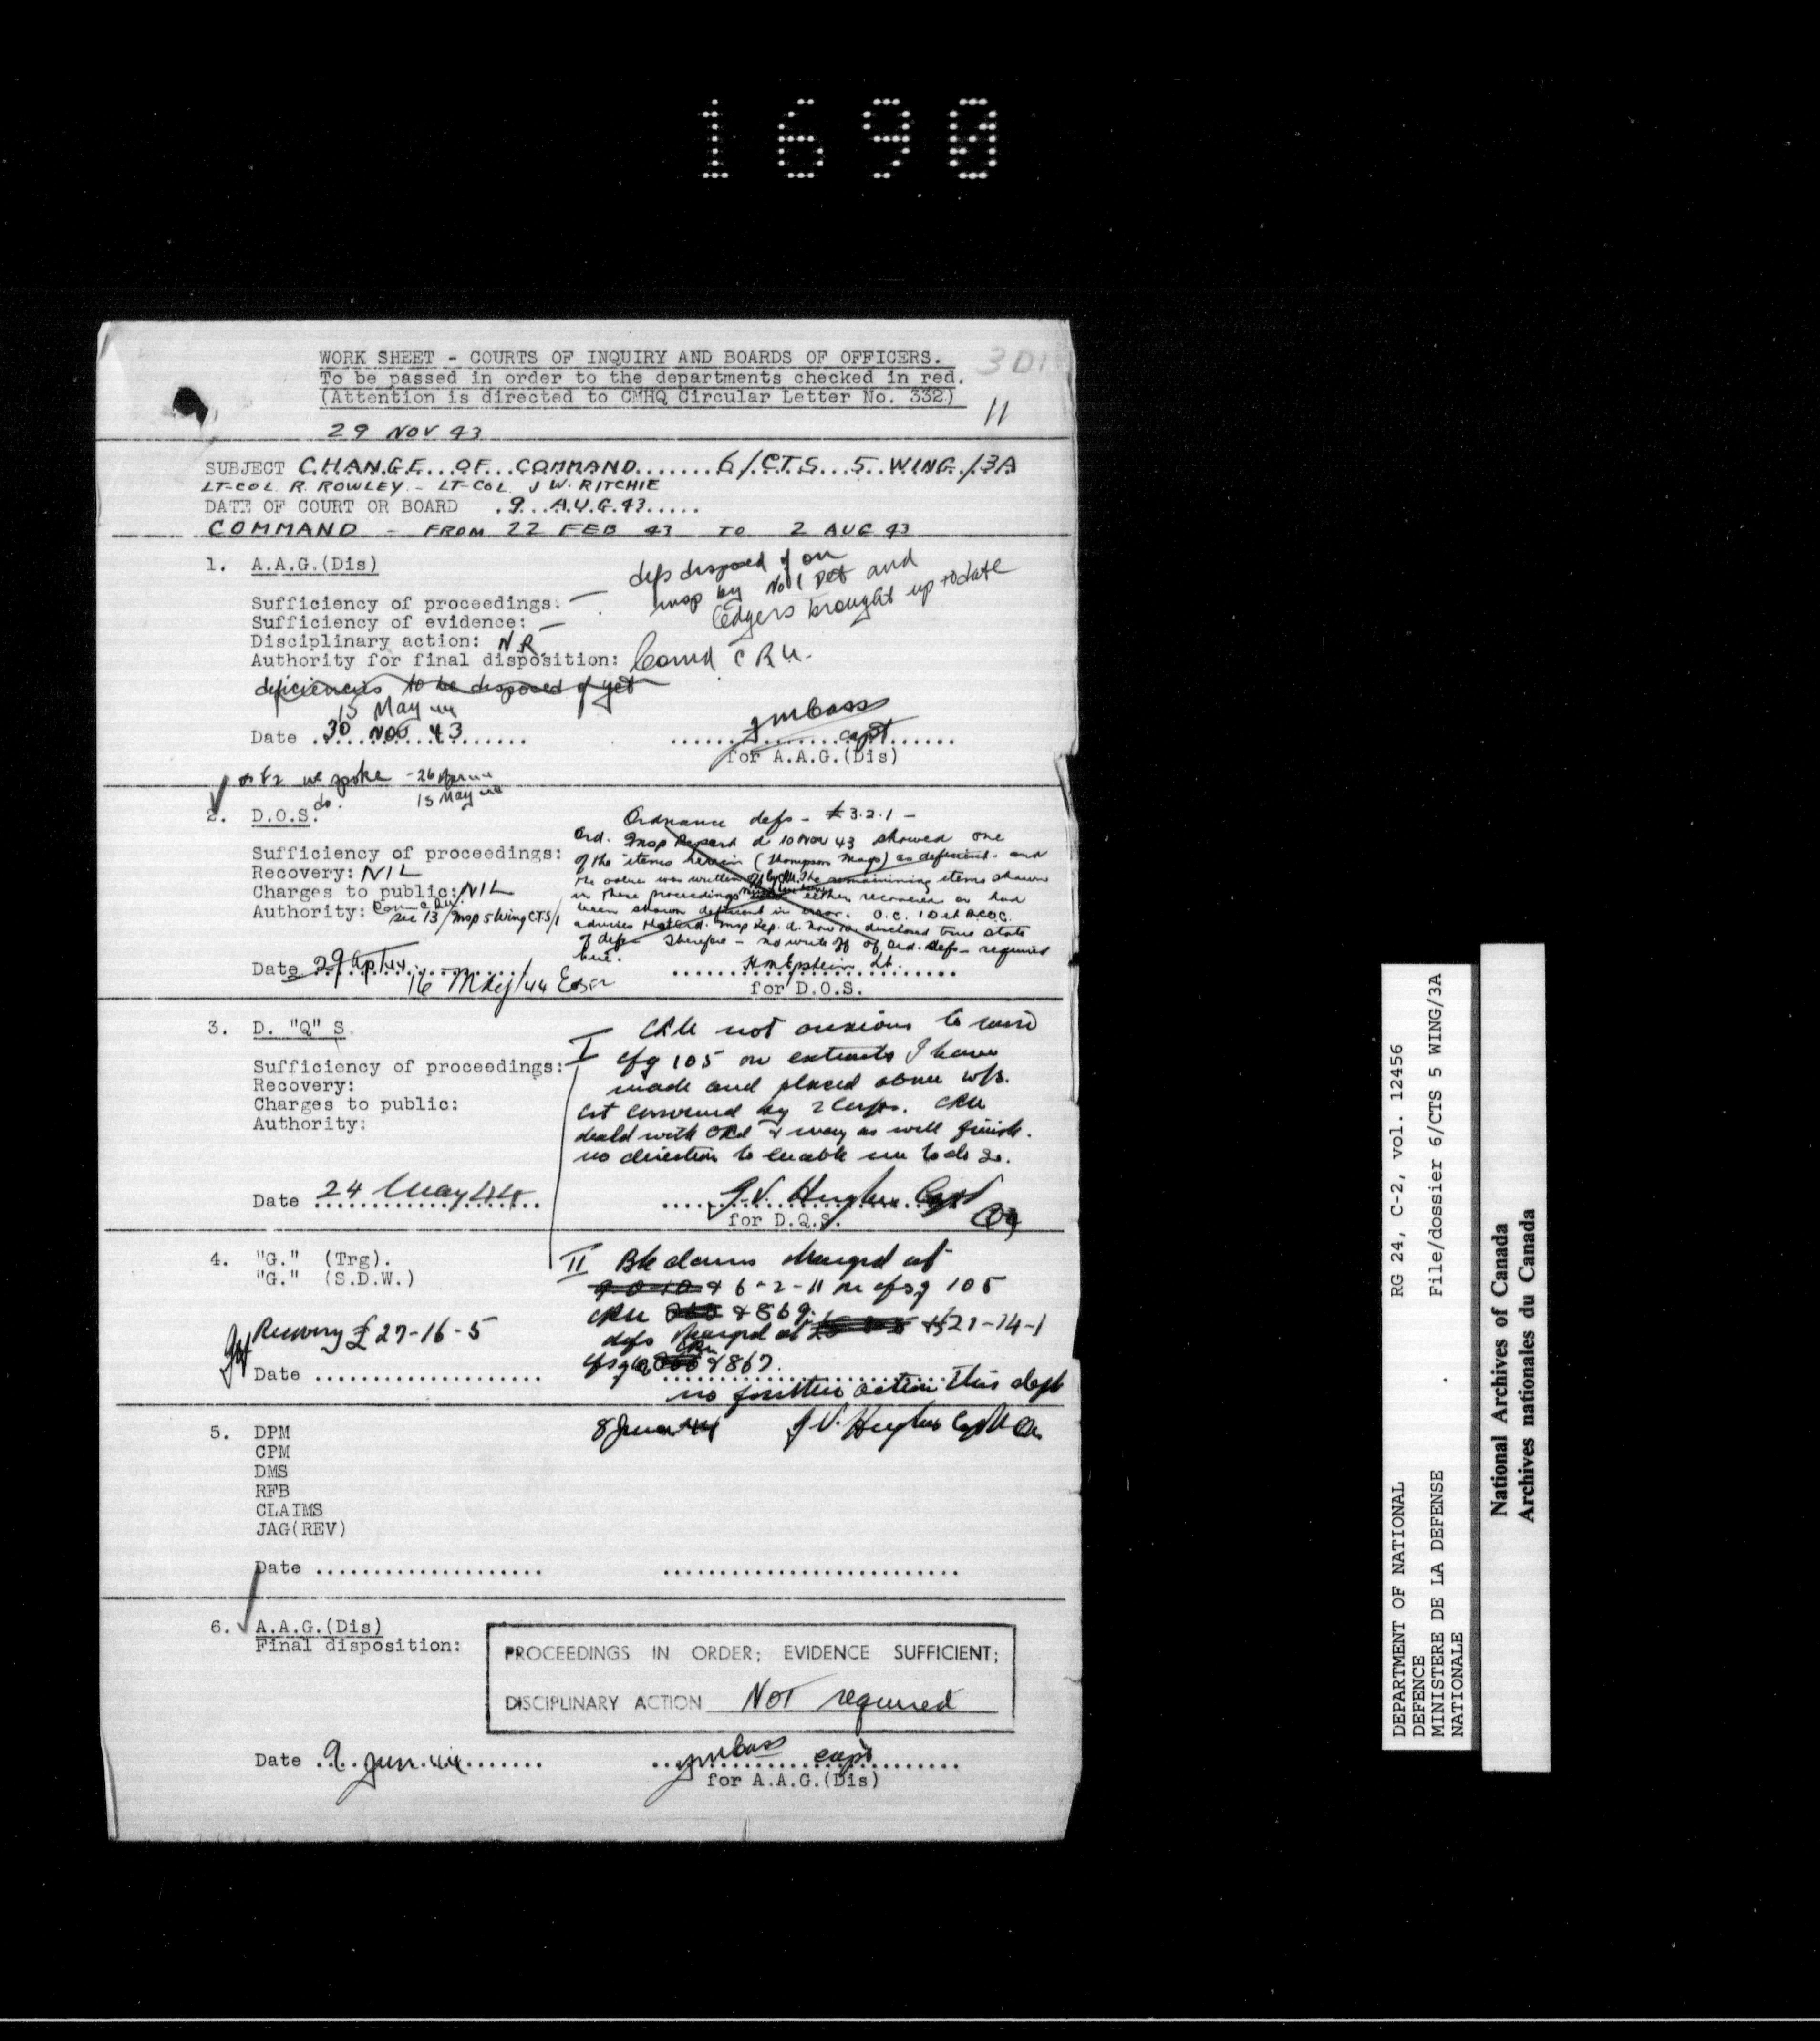 1690
WORK SHEET - COURTS OF INQUIRY AND BOARDS OF OFFICERS.
To be passed in order to the departments checked in red.
(Attention is directed to CMHQ Circular Letter No. 332)
3D1
11
29 NOV 43
SUBJECT CHANGE OF COMMAND 6/CTS 5 WING/3A
LT-COL R. ROWLEY - LT-COL J W. RITCHIE
DATE OF COURT OR BOARD 9 AUG 43
COMMAND - FROM 22 FEB 43 TO 2 AUG 43
1. A.A.G.(Dis)
defs disposed of on
insp by No 1 Det and
ledgers brought up to date
Sufficiency of proceedings: —
Sufficiency of evidence: —
Disciplinary action: N.R.
Authority for final disposition: Comd CRU.
deficiencies to be disposed of yet
15 May 44
Date 30 Nov 43
JMBass capt
for A.A.G.(Dis)
we spoke - 26 Apr 44
do. 15 May 44
2. D.O.S.
Ordnance defs - £3.2.1 -
Ord. Insp Report d 10 Nov 43 showed one
of the items herein (Thompson mags) as deficient and
the value was written off by CRU. The remaining items shown
in these proceedings either recovered or had
been shown deficient in error. O.C. 1 Det RCOC
advises that Ord. Insp Rep. d. Nov 10 disclosed true state
of defs Therefore - no write off of Ord. defs - required
here.
Sufficiency of proceedings:
Recovery: NIL
Charges to public: NIL
Authority: Comd CRU.
sec 13/Insp 5 Wing CTS/1
Date 29 Apl 44
16 May/44
HM Epstein Lt.
for D.O.S.
3. D. "Q" S.
I CRU not anxious to raise
cfq 105 on extracts I have
made and placed above w/s.
Crt convened by 2 Corps. CRU
dealt with Ord & may as well finish.
no direction to enable me to do so.
Sufficiency of proceedings:
Recovery:
Charges to public:
Authority:
Date 24 May 44
J.V. Hughes Capt
for D.Q.S.
4. "G." (Trg).
"G." (S.D.W.)
II Bk dams charged at
& 6-2-11 on cfsq 105
CRU & 869.
defs charged at £21-14-1
CRU
& 867.
Recovery £27-16-5
Date
no further action this dept
8 June 44 J.V. Hughes Capt
5. DPM
CPM
DMS
RFB
CLAIMS
JAG(REV)
Date
6. A.A.G.(Dis)
Final disposition:
PROCEEDINGS IN ORDER; EVIDENCE SUFFICIENT;
DISCIPLINARY ACTION NOT required
Date 9 Jun 44
JMBass capt
for A.A.G.(Dis)
DEPARTMENT OF NATIONAL
DEFENCE
MINISTERE DE LA DEFENSE
NATIONALE
RG 24, C-2, vol. 12456
File/dossier 6/CTS 5 WING/3A
National Archives of Canada
Archives nationales du Canada